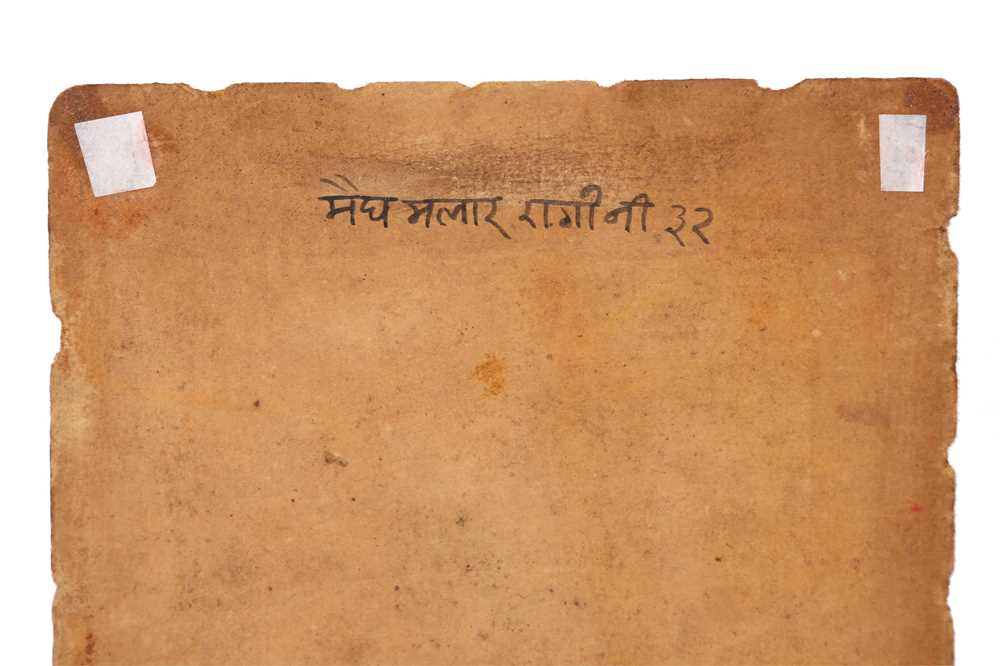 मैघ मलार रागीनी ३२